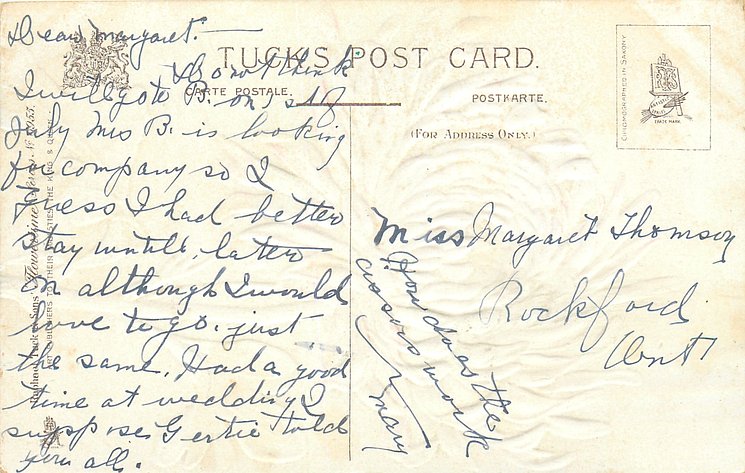 Dear Margaret:—
TUCK'S POST CARD.
CARTE POSTALE.
POSTKARTE.
(FOR ADDRESS ONLY.)
CHROMOGRAPHED IN SAXONY
TRADE MARK
Do not think
I will go to B. on 1st of
July Mrs B. is looking
for company so I
guess I had better
stay untill, later
on although I would
love to go. just
the same. Had a good
time at wedding I
suppose Gertie told
you all.
Raphael Tuck & Sons'
ART PUBLISHERS TO THEIR MAJESTIES THE KING & QUEEN
Miss Margaret Thomson
Rockford
Ont
How does the
cissors work
Mary